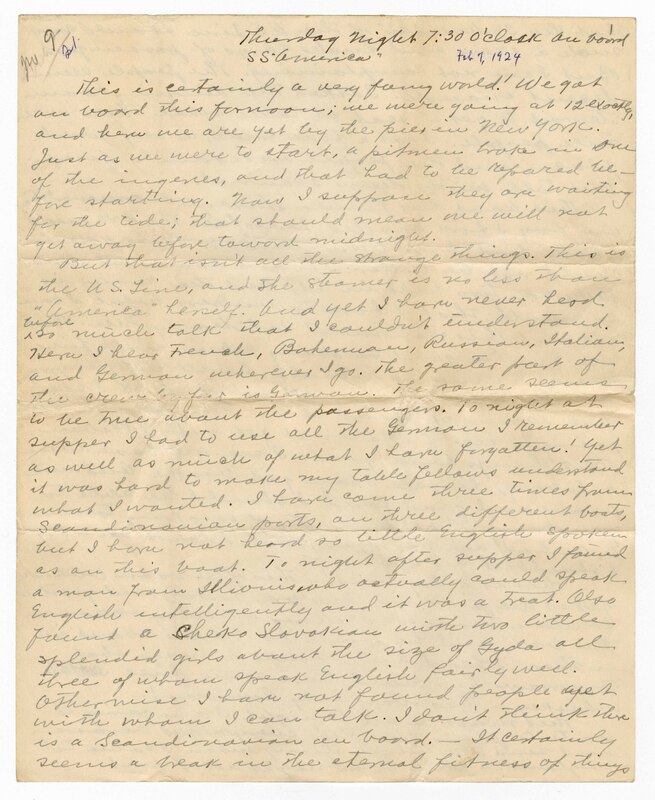 9
Thursday Night 7:30 O'Clock on bo'rd
SS "America"
Feb 7, 1924
This is certainly a very funy world! We got
on board this fornoon; we were going at 12 oclock,
and here we are yet by the pier in New York.
Just as we were to start, a pitmen broke in one
of the ingenes, and that had to be repared be-
fore starting. Now I suppose they are waiting
for the tide; that should mean we will not
get away before toword midnight.
But that isn't all the strange things. This is
the U.S. Line, and the steamer is no less than
"America" herself. And yet I have never heod
before
so much talk that I couldn't understand.
Here I hear French, Bohemian, Russian, Italian,
and German wherever I go. The greater part of
the crew by far is German. The same seems
to be true about the passengers. To night at
supper I had to use all the German I remember
as well as much of what I have forgatten! Yet
it was hard to make my table fellows understand
what I wanted. I have come three times from
Scandinavian ports, on three different boats,
but I have not heard so little English spoken
as on this boat. To night after supper I found
a man from Illinois who actually could speak
English intelligently and it was a treat. Also
found a Cheko Slovakian with two little
splendid girls about the size of Gyda all
three of whom speak English fairly well.
Otherwise I have not found people yet
with whom I can talk. I don't think there
is a Scandinavian on board. — It certainly
seems a break in the eternal fitness of things